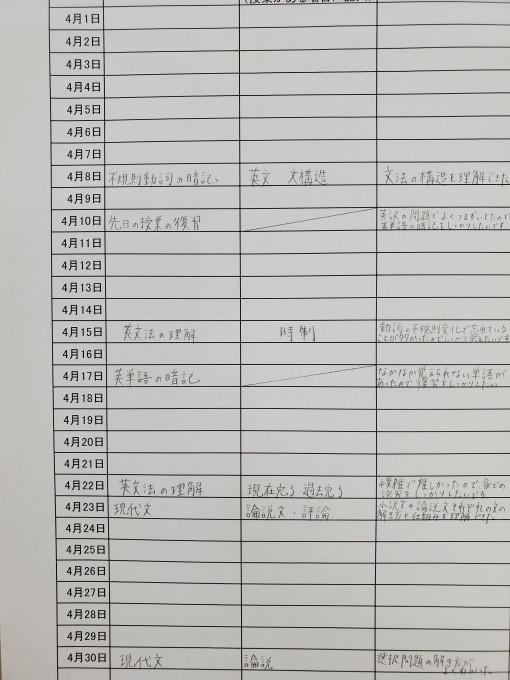 4月1日
4月2日
4月3日
4月4日
4月5日
4月6日
4月7日
4月8日 不規則動詞の暗記、 英文 文構造 文法の構造を理解できた
4月9日
4月10日 先日の授業の復習 英訳の問題でよくつまずいてたので
英単語の暗記をしっかりしたいです
4月11日
4月12日
4月13日
4月14日
4月15日 英文法の理解 時制 動詞の不規則変化で忘れている
ことが多かったのでしっかり覚えたいです
4月16日
4月17日 英単語の暗記 なかなか覚えられない単語が
あったので復習をしっかりしたい
4月18日
4月19日
4月20日
4月21日
4月22日 英文法の理解 現在完了 過去完了 複雑で難しかったので、家での
をしっかりしたいです
4月23日 現代文 論説文・評論 小説文や論説文それぞれの文の
解き方や仕組みを理解できた
4月24日
4月25日
4月26日
4月27日
4月28日
4月29日
4月30日 現代文 論説 選択問題の解き方が
よくわかった